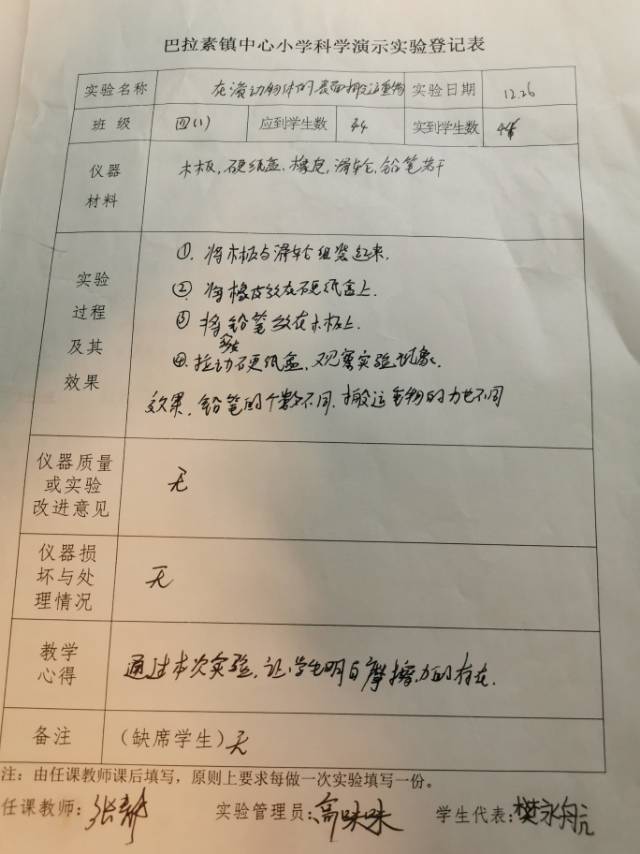 巴拉素镇中心小学科学演示实验登记表
实验名称 在滚动物体的表面搬运重物 实验日期 12.26
班 级 四(1) 应到学生数 44 实到学生数 44
仪器材料 木板,硬纸盒,橡皮,滑轮,铅笔若干
实验过程及其效果
①.将木板与滑轮组装起来.
②.将橡皮放在硬纸盒上.
③将铅笔放在木板上.
④.拉动硬纸盒,观察实验现象.
效果,铅笔的个数不同,搬运重物的力也不同
仪器质量或实验改进意见 无
仪器损坏与处理情况 无
教学心得 通过本次实验,让学生明白摩擦力的存在.
备注 (缺席学生)无
注:由任课教师课后填写,原则上要求每做一次实验填写一份。
任课教师: 实验管理员: 学生代表: